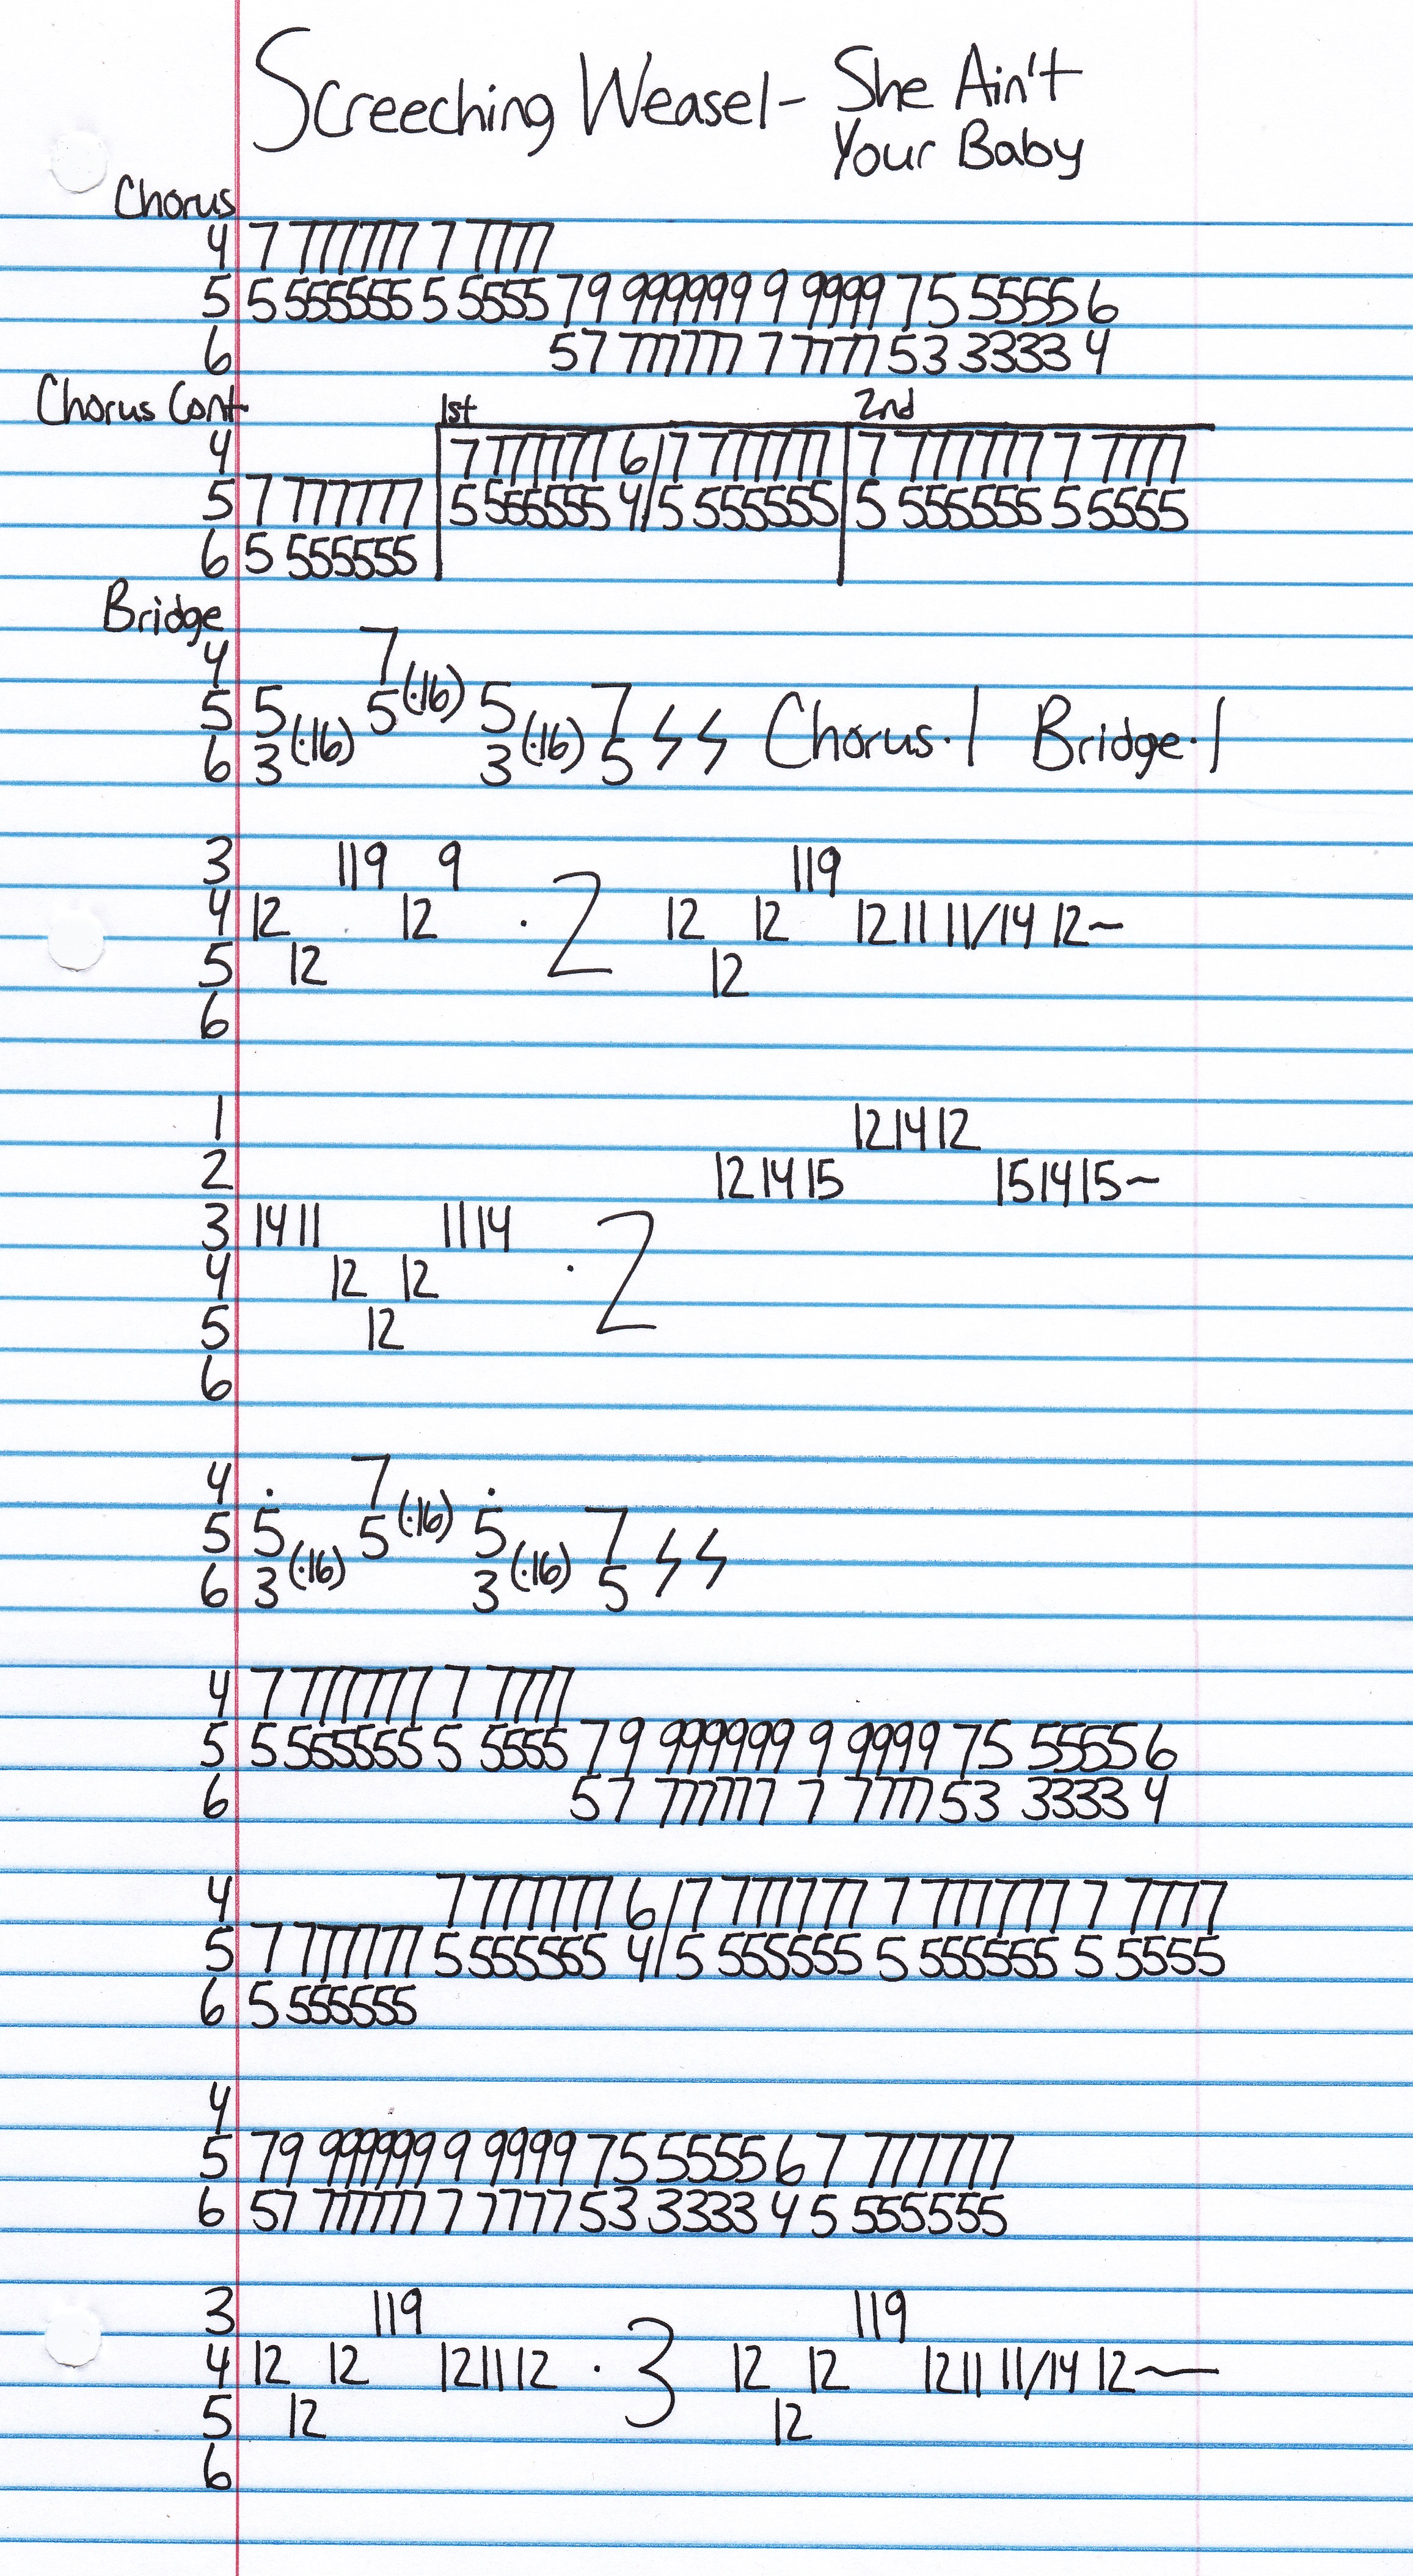 Screeching Weasel - She Ain't
Your Baby
Chorus
4 7 777777 7 7777
5 5 555555 5 5555 79 999999 9 9999 75 5555 6
6 57 777777 7 7777 53 3333 4
Chorus Cont. 1st 2nd
4 7 777777 6/7 777777 7 777777 7 7777
5 7 777777 5 555555 4/5 555555 5 555555 5 5555
6 5 555555
Bridge
4 7
5 5 5(·16) 5 7
6 3(·16) 3(·16) 5 Chorus · 1 Bridge · 1
3 119 9 119
4 12 12 · 2 12 12 1211 11/14 12~
5 12 12
6
1 121412
2 121415 151415~
3 1411 1114
4 12 12 · 2
5 12
6
4 . 7 .
5 5 5(·16) 5 7
6 3(·16) 3(·16) 5
4 7 777777 7 7777
5 5 555555 5 5555 79 999999 9 9999 75 5555 6
6 57 777777 7 7777 53 3333 4
4 7 777777 6/7 777777 7 777777 7 7777
5 7 777777 5 555555 4/5 555555 5 555555 5 5555
6 5 555555
4
5 79 999999 9 9999 75 5555 6 7 777777
6 57 777777 7 7777 53 3333 4 5 555555
3 119 119
4 12 12 121112 · 3 12 12 1211 11/14 12~
5 12 12
6